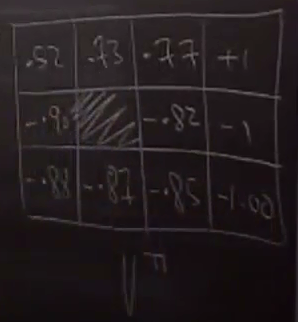 .52 .73 .77 +1
-.90 -.82 -1
-.88 -.87 -.85 -1.00
V π